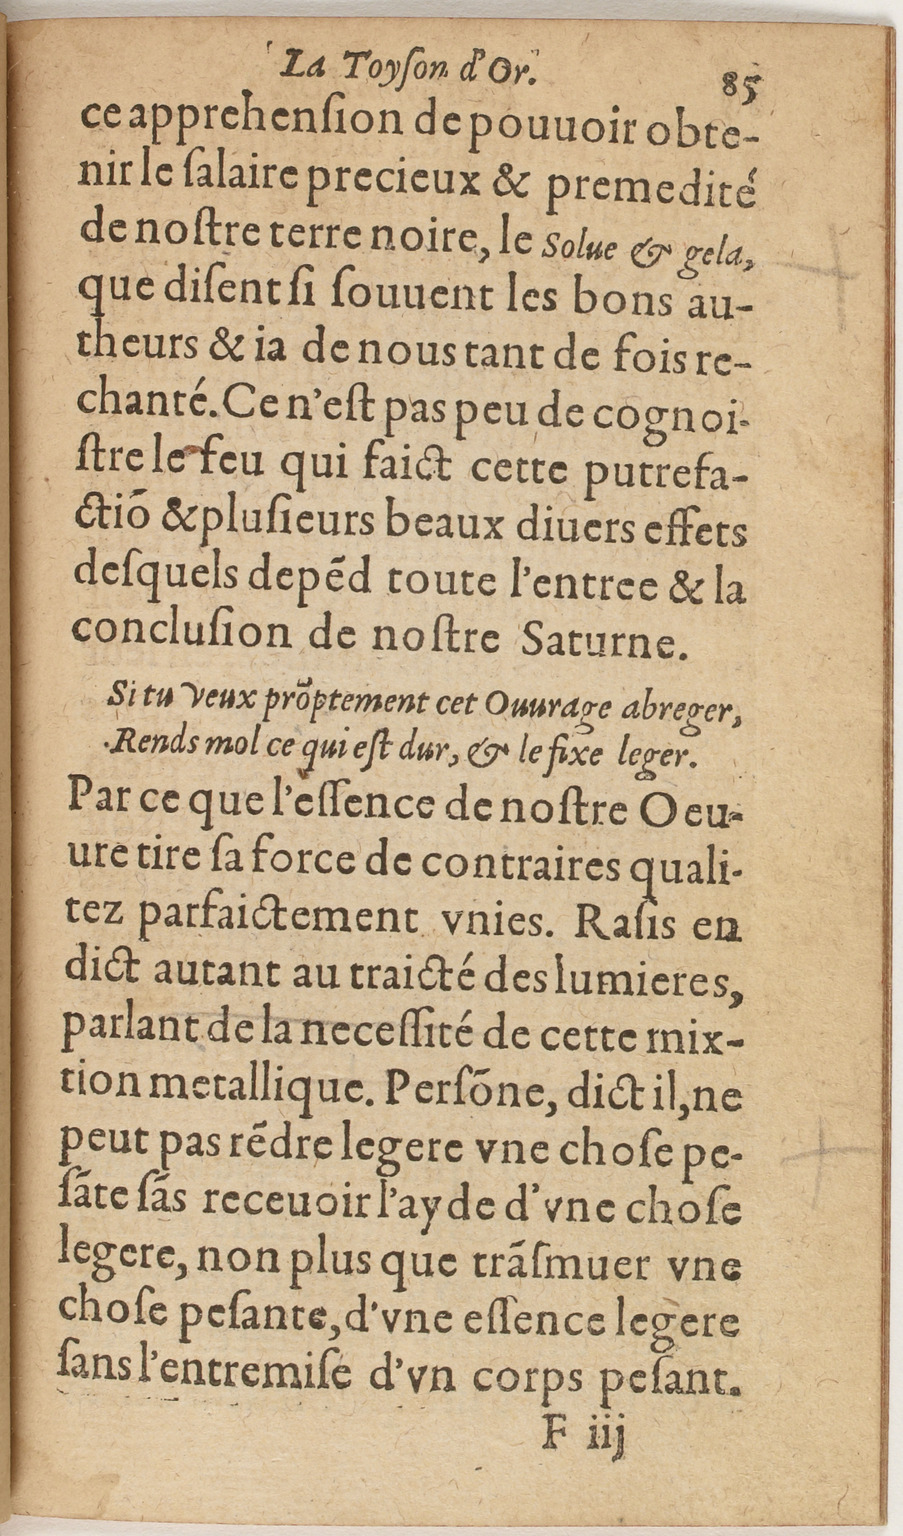 La Toyſon d'Or. 85
ce apprehenſion de pouuoir obte-
nir le ſalaire precieux & premedité
de noſtre terre noire, le Solue & gela,
que diſent ſi ſouuent les bons au-
theurs & ia de nous tant de fois re-
chanté. Ce n'eſt pas peu de cognoi-
ſtre le feu qui faict cette putrefa-
ctiõ & pluſieurs beaux diuers effets
deſquels depẽd toute l'entree & la
concluſion de noſtre Saturne.
Si tu veux prõptement cet Ouurage abreger,
Rends mol ce qui eſt dur, & le fixe leger.
Par ce que l'eſſence de noſtre Oeu-
ure tire ſa force de contraires quali-
tez parfaictement vnies. Raſis en
dict autant au traicté des lumieres,
parlant de la neceſſité de cette mix-
tion metallique. Perſõne, dict il, ne
peut pas rẽdre legere vne choſe pe-
ſãte ſãs receuoir l'ayde d'vne choſe
legere, non plus que trãſmuer vne
choſe peſante, d'vne eſſence legere
ſans l'entremiſe d'vn corps peſant.
F iij